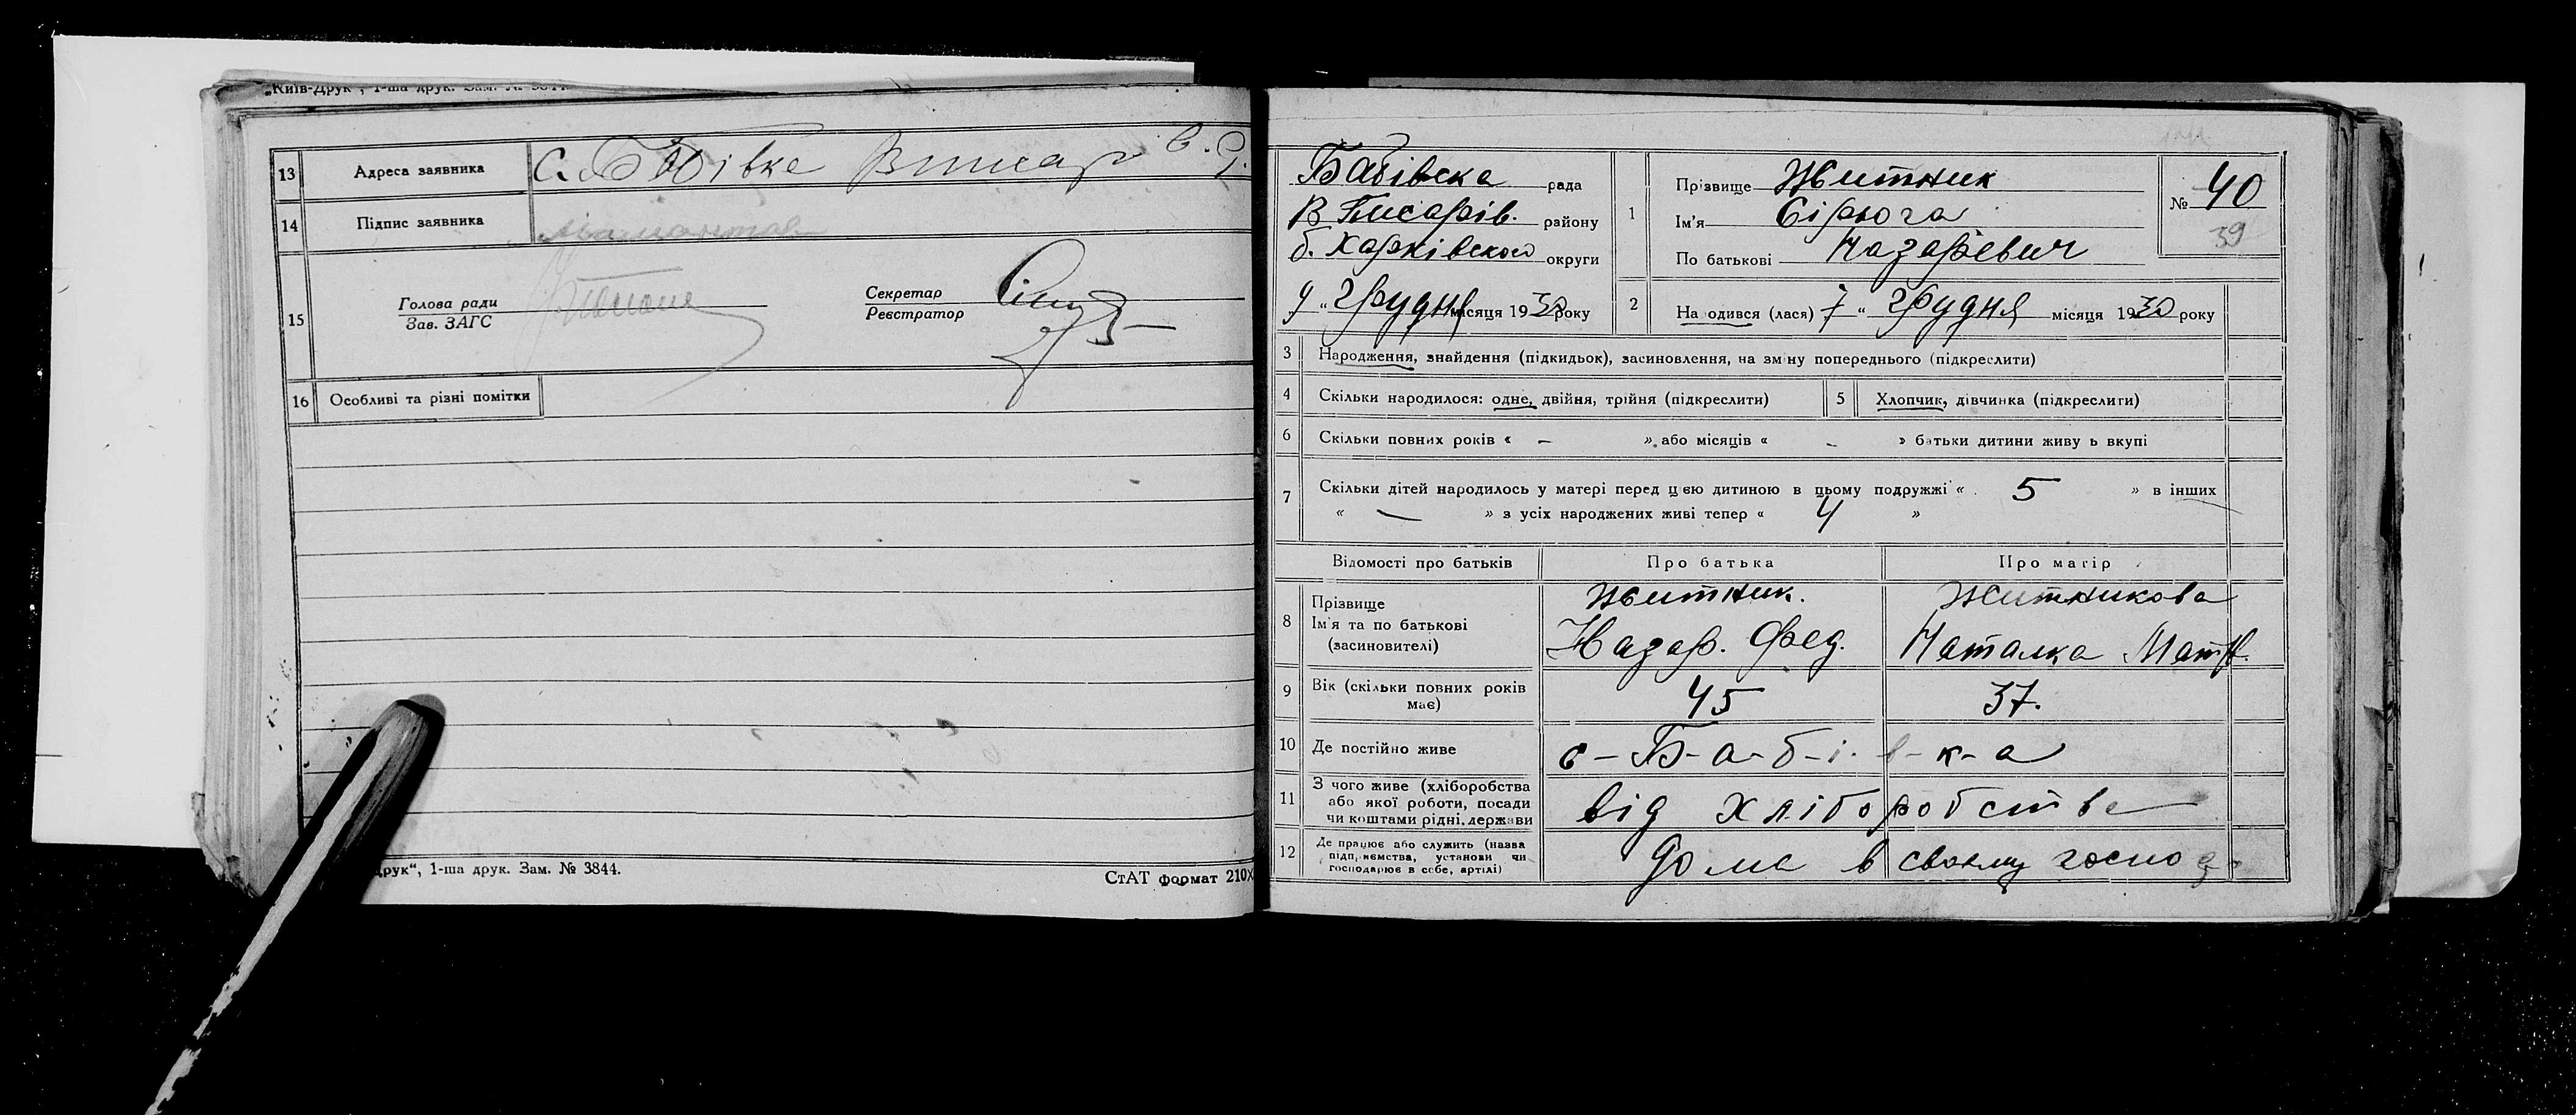 „Київ-Друк", 1-ша друк. Зам. № 3844.
13 Адреса заявника с. Бабівка Вписар
14 Підпис заявника
15 Голова ради
Зав. ЗАГС
Секретар
Реєстратор
16 Особливі та різні помітки
друк", 1-ша друк. Зам. № 3844.
СтАТ формат 210х
Бабівска рада
В Писарів. району
б. Харківского округи
9 „ грудня місяця 1930 року
1 Прізвище Житник
Ім'я Сірьога
По батькові Назарєвич
№ 40
39
2 Народився (лася) 7 „ грудня місяця 1930 року
3 Народження, знайдення (підкидьок), засиновлення, на зміну попереднього (підкреслити)
4 Скільки народилося: одне, двійня, трійня (підкреслити)
5 Хлопчик, дівчинка (підкреслити)
6 Скільки повних років « – », або місяців « – » батьки дитини живуть вкупі
7 Скільки дітей народилось у матері перед цією дитиною в цьому подружжі « 5 » в інших
« — » з усіх народжених живі тепер « 4 »
Відомості про батьків Про батька Про матір
8 Прізвище
Ім'я та по батькові
(засиновителі)
Житник.
Назар. Фед.
Житникова
Наталка
9 Вік (скільки повних років
має)
45 37.
10 Де постійно живе с-Б-а-б-і-в-к-а
11 З чого живе (хліборобства
або якої роботи, посади
чи коштами рідні, держави
від хліборобства
12 Де працює або служить (назва
підприємства, установи чи
господарює в себе, артілі)
дома в своєму господ